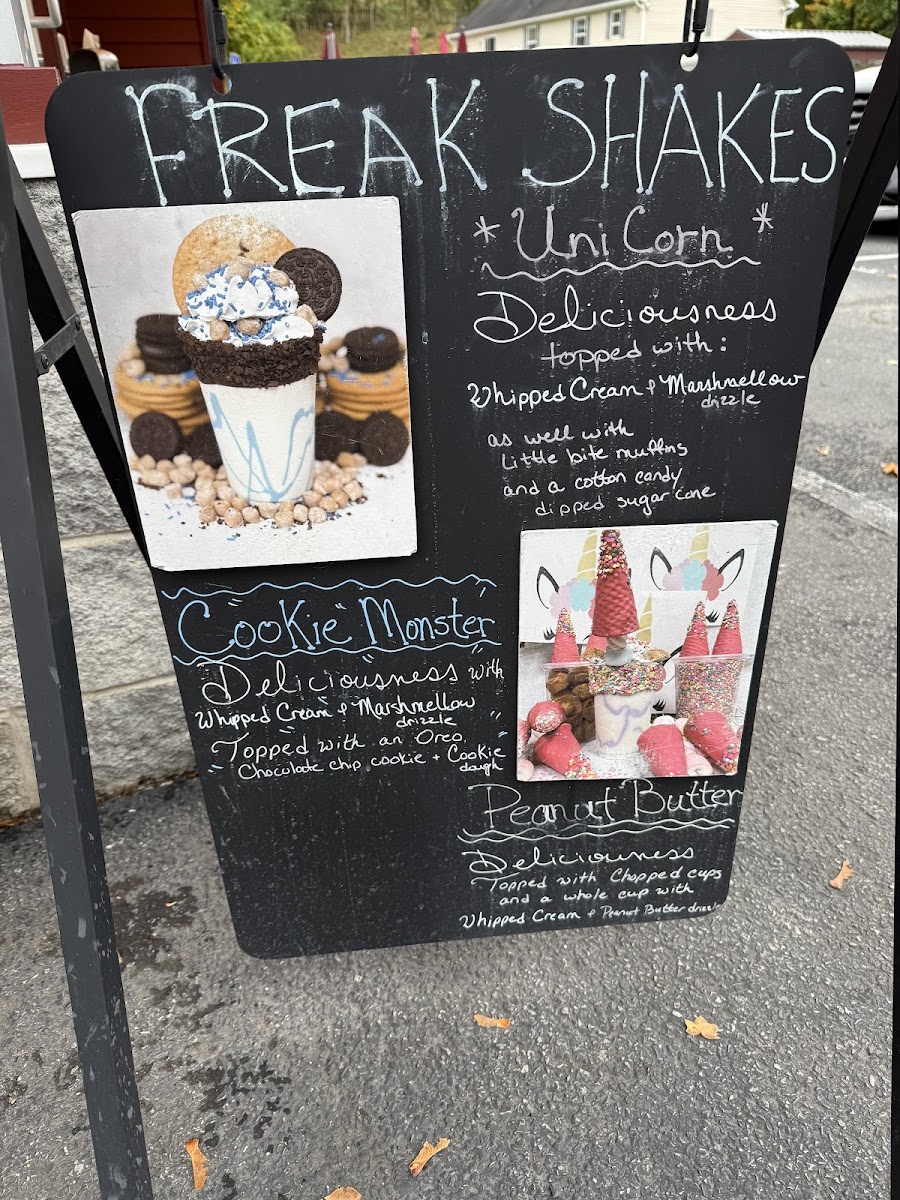 FREAK SHAKES
* UniCorn *
Deliciousness
topped with:
Whipped Cream & Marshmellow
drizzle
as well with
Little bite muffins
and a cotton candy
dipped sugar cone
"Cookie" Monster
Deliciousness with
Whipped Cream & Marshmellow
drizzle
Topped with an Oreo,
Chocolate chip cookie + "Cookie
dough"
Peanut Butter
Deliciouness
Topped with Chopped cups
and a whole cup with
Whipped Cream & Peanut Butter drizzle